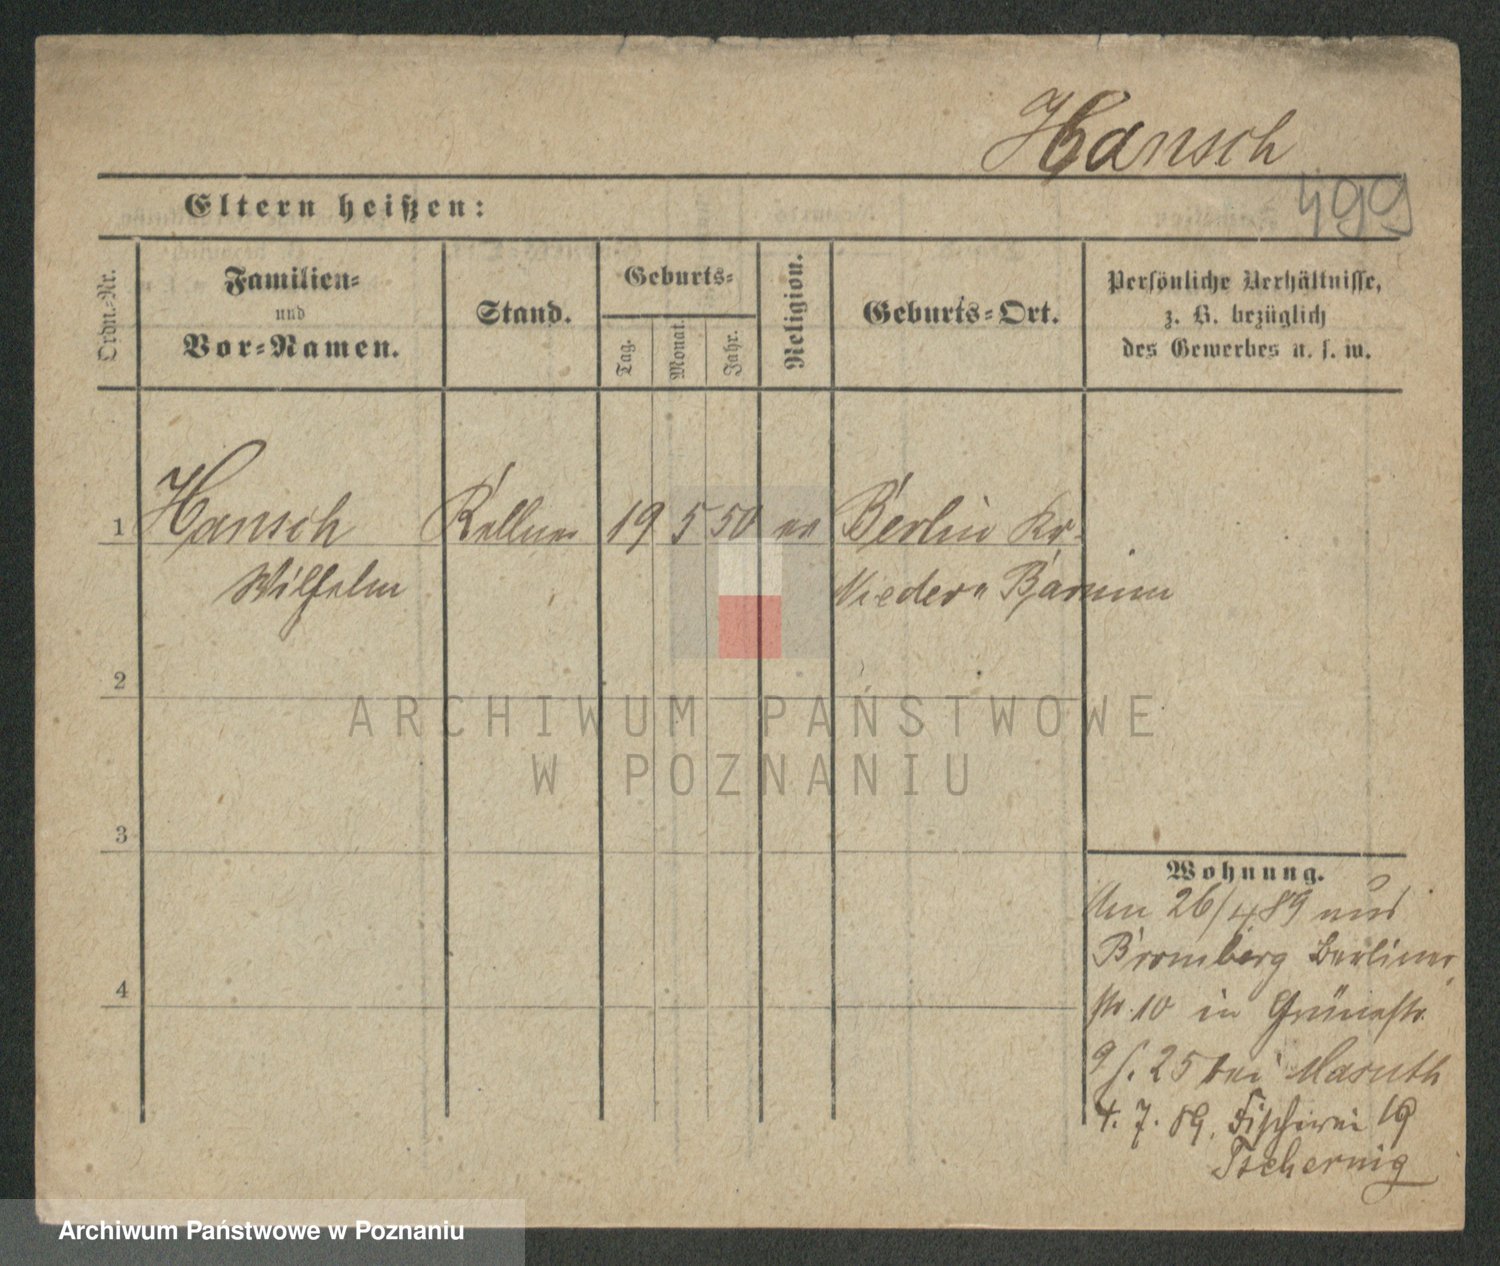 Hansch
499
Eltern heißen:
Ordn.-Nr.
Familien-
und
Vor-Namen.
Stand.
Geburts-
Tag.
Monat.
Jahr.
Religion.
Geburts-Ort.
Persönliche Verhältnisse,
z. B. bezüglich
des Gewerbes u. s. w.
1 Hansch Kellner 19 5 50 ev Berlin Kr.
Wilhelm Nieder Barnim
2
ARCHIWUM PAŃSTWOWE
W POZNANIU
3
4
Wohnung.
Am 26/4 89 aus
Bromberg Berliner
str. 10 in Grünestr.
25 bei Masuth
4. 7. 89. Fischerei 19
Tschernig
Archiwum Państwowe w Poznaniu